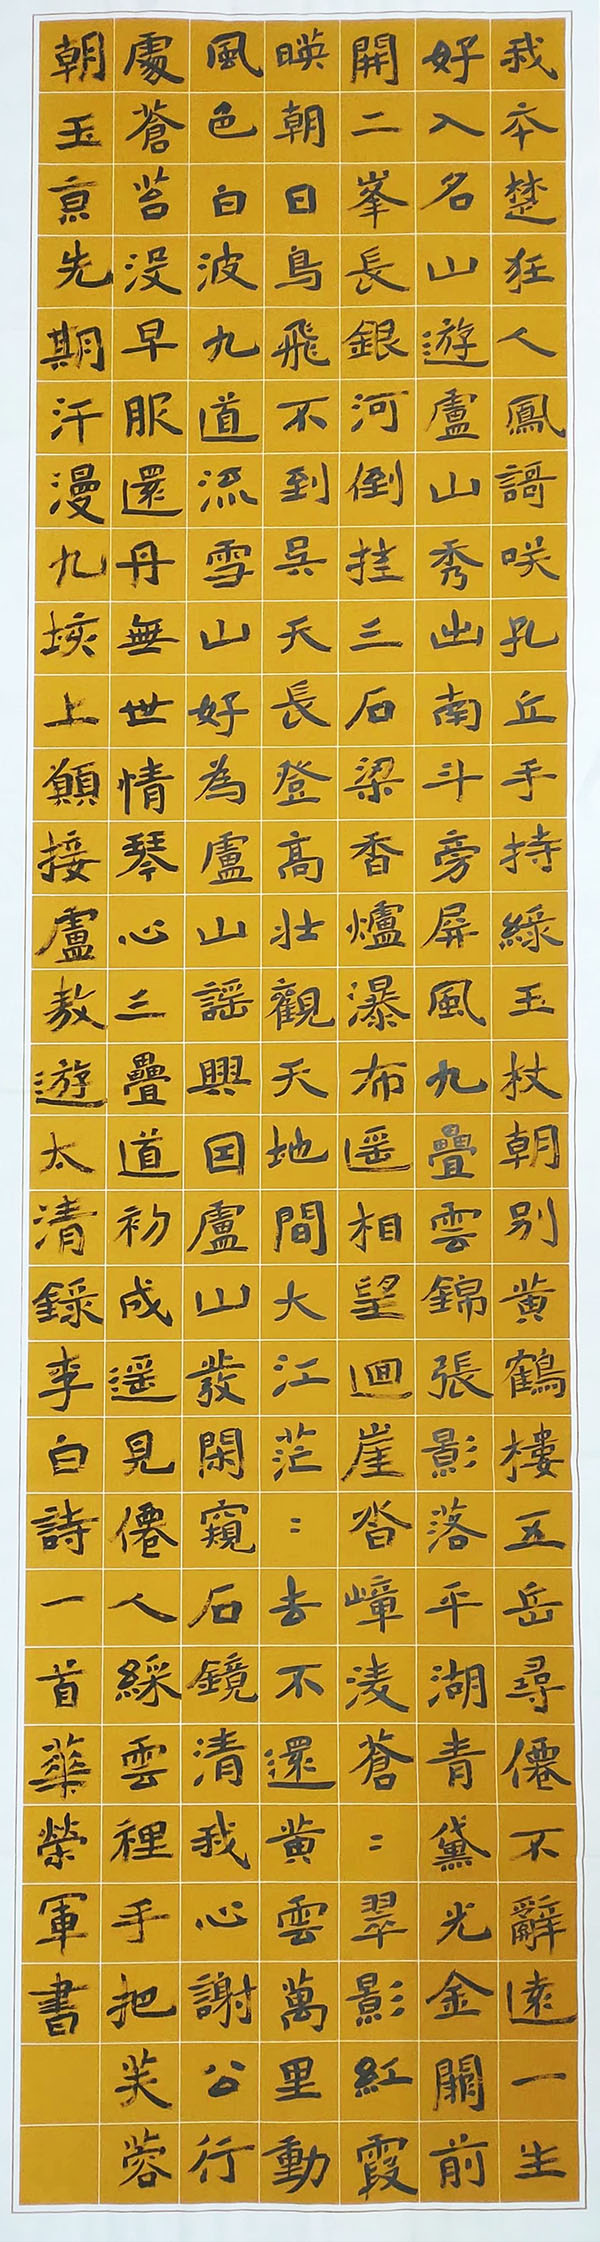 我本楚狂人鳳謌咲孔丘手持綠玉杖朝别黄鶴樓五岳尋僊不辭遠一生
好入名山遊盧山秀出南斗旁屏風九疊雲錦張影落平湖青黛光金闕前
開二峯長銀河倒挂三石梁香爐瀑布遥相望迴崖沓嶂淩蒼〻翠影紅霞
暎朝日鳥飛不到吳天長登高壯觀天地間大江茫〻去不還黄雲萬里動
風色白波九道流雪山好為盧山謠興因盧山發閑窺石鏡清我心謝公行
處蒼苔没早服還丹無世情琴心三疊道初成遥見僊人綵雲裡手把芙蓉
朝玉亰先期汗漫九垓上願接盧敖遊太清錄李白詩一首葉榮軍書